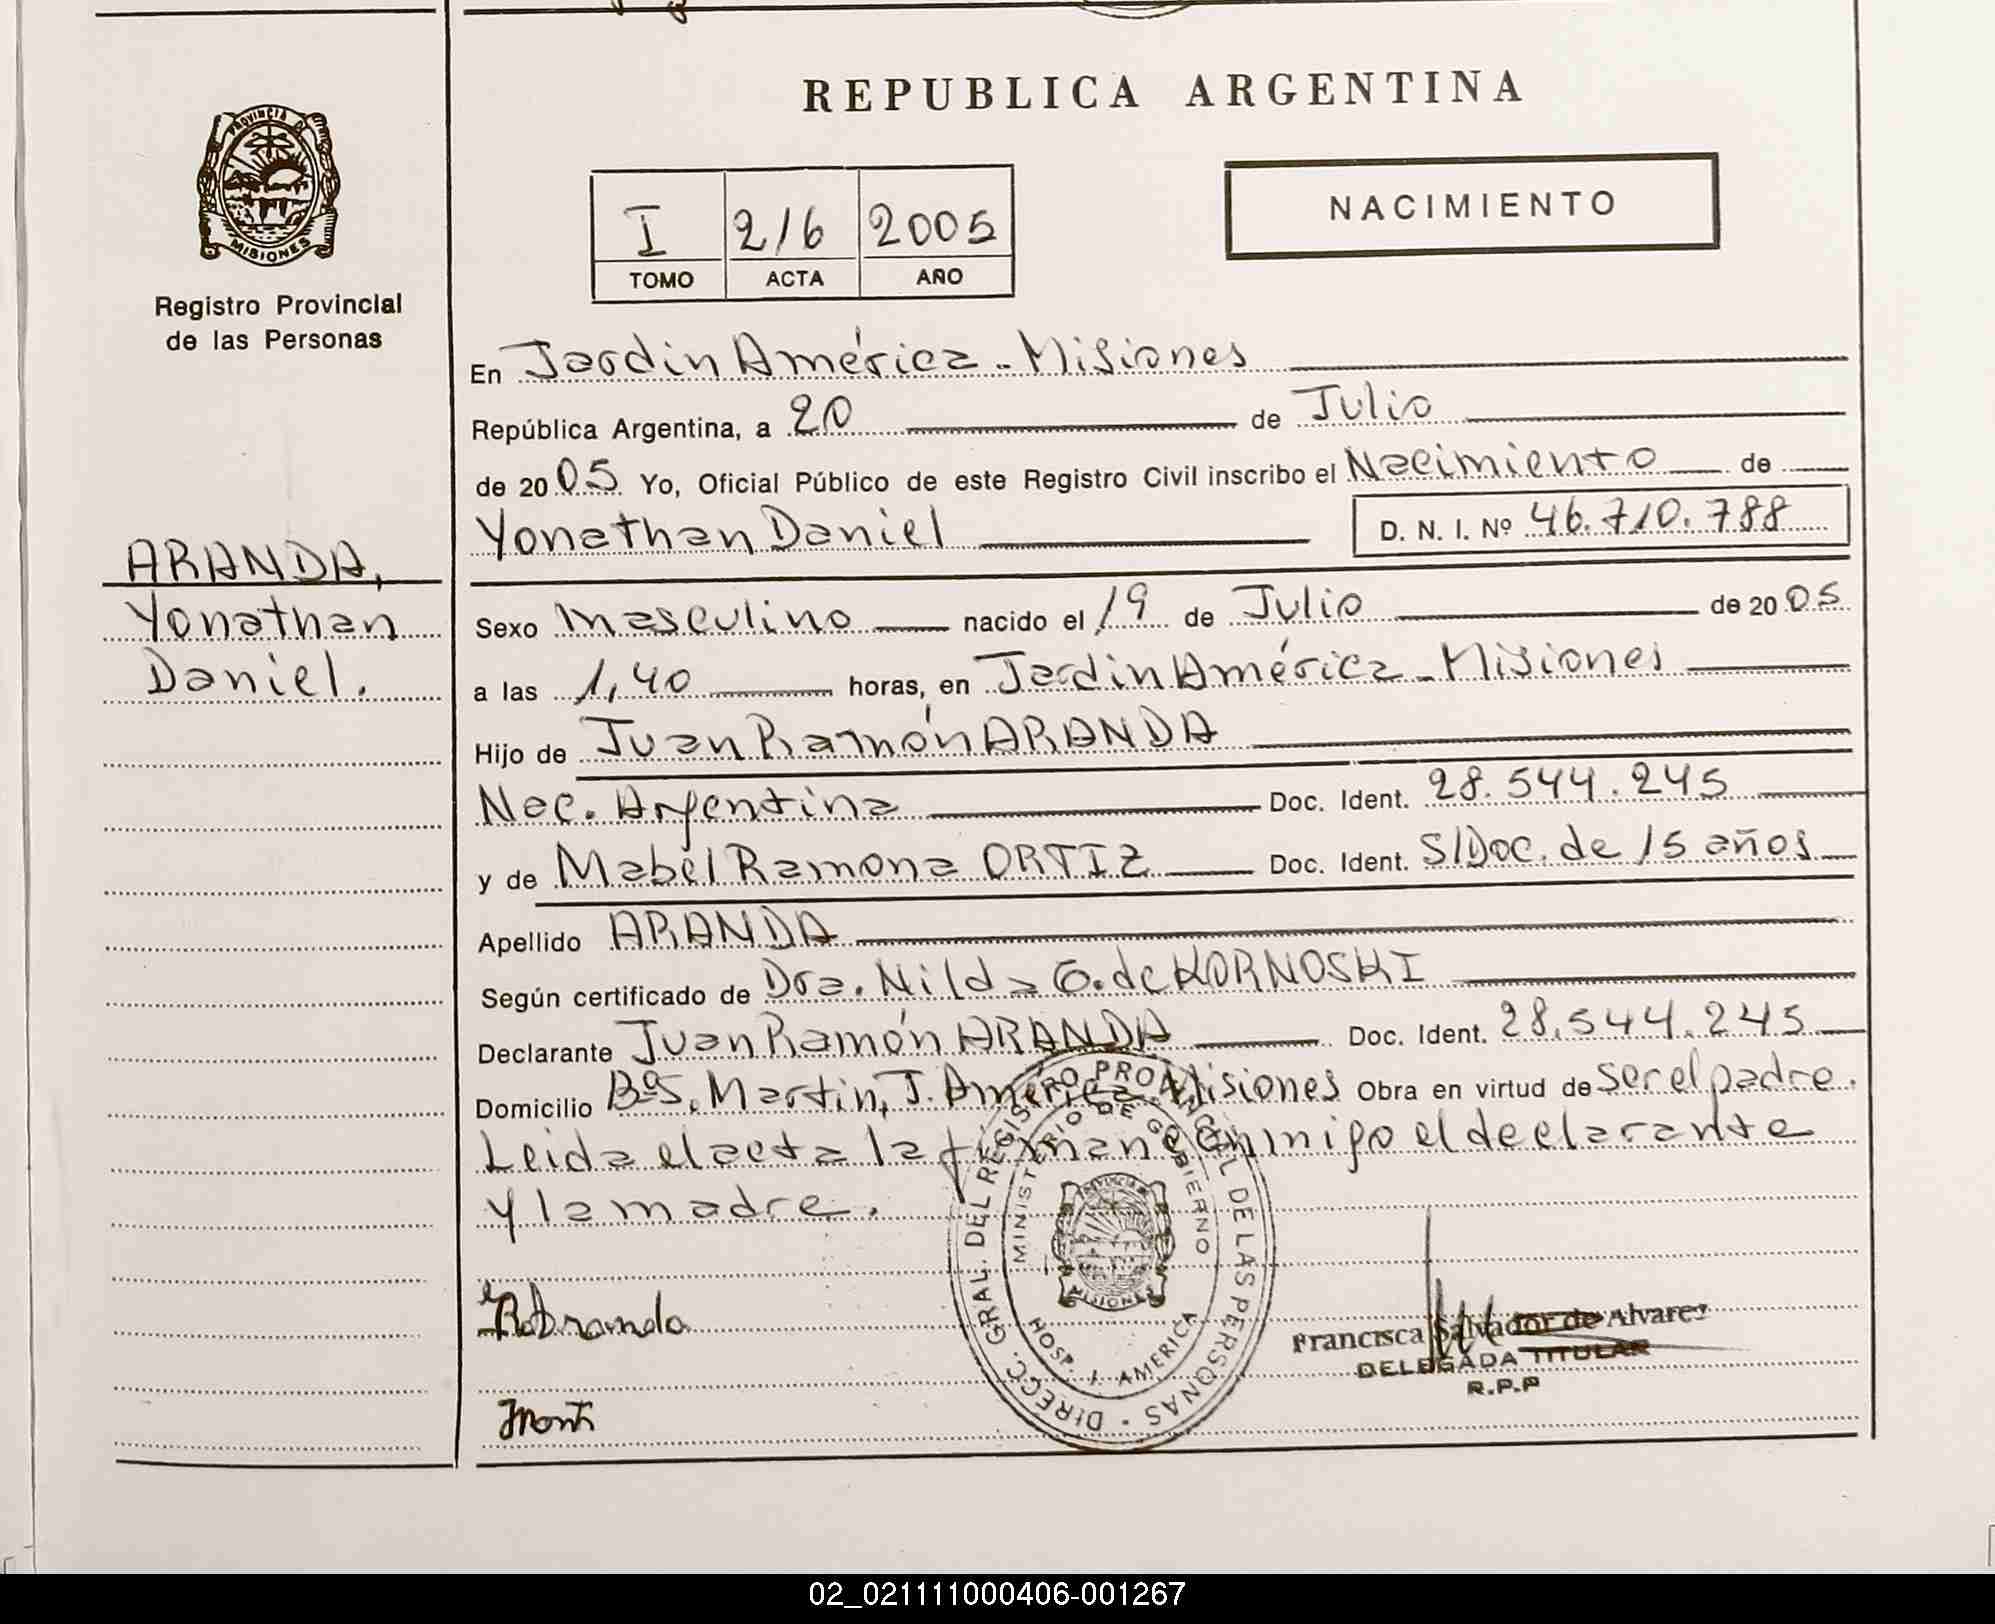 REPUBLICA ARGENTINA
PROVINCIA D
MISIONES
Registro Provincial
de las Personas
I 216 2005
TOMO ACTA AÑO
NACIMIENTO
ARANDA,
Yonathan
Daniel.
En Jardin América - Misiones
República Argentina, a 20 de Julio
de 2005 Yo, Oficial Público de este Registro Civil inscribo el Nacimiento de
Yonathan Daniel D. N. I. Nº 46.710.788
Sexo masculino nacido el 19 de Julio de 2005
a las 1,40 horas, en Jardin América - Misiones
Hijo de Juan Ramón ARANDA
Nac. Argentina Doc. Ident. 28.544.245
y de Mabel Ramona ORTIZ Doc. Ident. S/Doc. de 15 años
Apellido ARANDA
Según certificado de Dra. Nilda G. de KORNOSKI
Declarante Juan Ramón ARANDA Doc. Ident. 28.544.245
Domicilio Bº S. Martin, J. América Misiones Obra en virtud de ser el padre.
Leida el acta la firman conmigo el declarante
y la madre.
DIRECC. GRAL. DEL REGISTRO PROVINCIAL DE LAS PERSONAS
MINISTERIO DE GOBIERNO
HOSP. J. AMERICA
MISIONES
Francisca Salvador de Alvarez
DELEGADA TITULAR
R.P.P
02_021111000406-001267